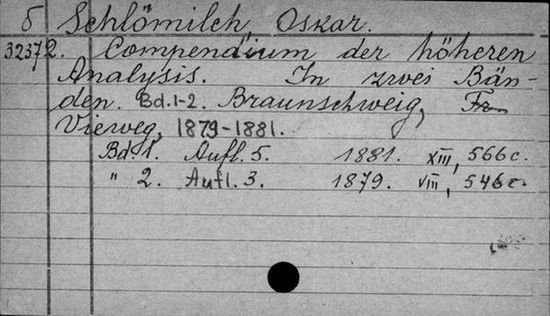 б Schlömilch, Oskar.
32372. Compendium der höheren
Analysis. In zwei Bän-
den. Bd.1-2. Braunschweig, Fr.
Vieweg, 1879-1881.
Bd. 1. Aufl. 5. 1881. XIII, 566 c.
" 2. Aufl. 3. 1879. VIII, 546 c.